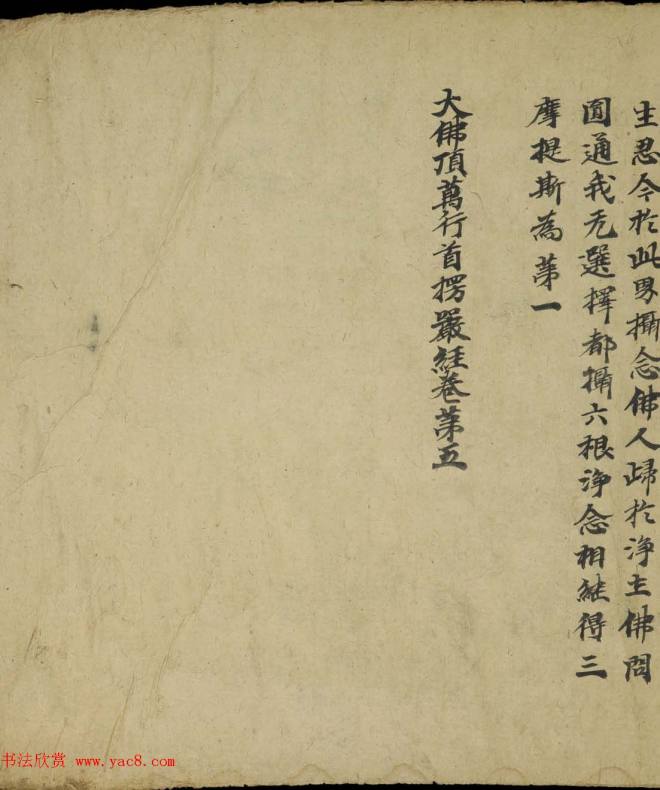 生忍今於此界攝念佛人歸於淨土佛問
圓通我无選擇都攝六根淨念相継得三
摩提斯為苐一
大佛頂萬行首楞嚴經卷苐五
书法欣赏 www.yac8.com